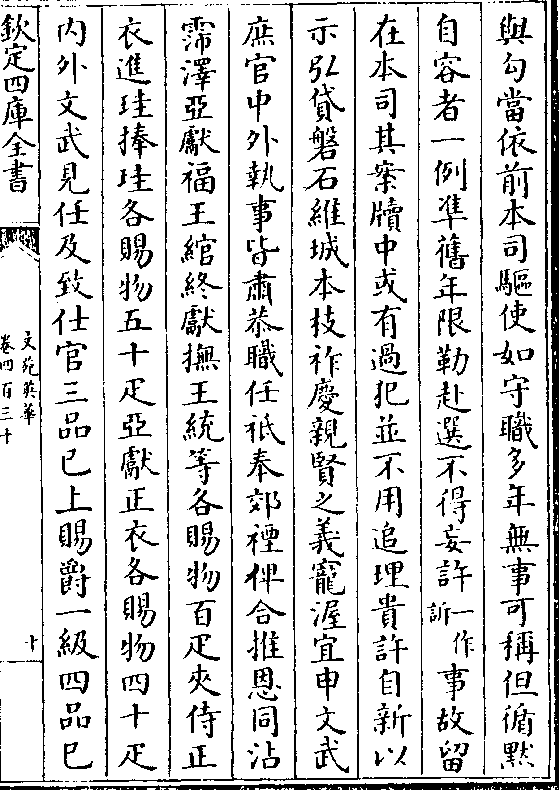 與勾當依前本司驅使如守職多年無事可稱但循黙
自容者一例准舊年限勒赴選不得妄許一作訴事故留
在本司其案牘中或有過犯並不用追理貴許自新以
示弘貸磐石維城本枝祚慶親賢之義寵渥宜申文武
庶官中外執事皆肅恭職任祗奉郊禋俾合推恩同沾
霈澤亞獻福王綰終獻撫王統等各賜物百疋夾侍正
衣進珪捧珪各賜物五十疋亞獻正衣各賜物四十疋
内外文武見任及致仕官三品已上賜爵一級四品已
欽定四庫全書
文苑英華
卷四百三十
十